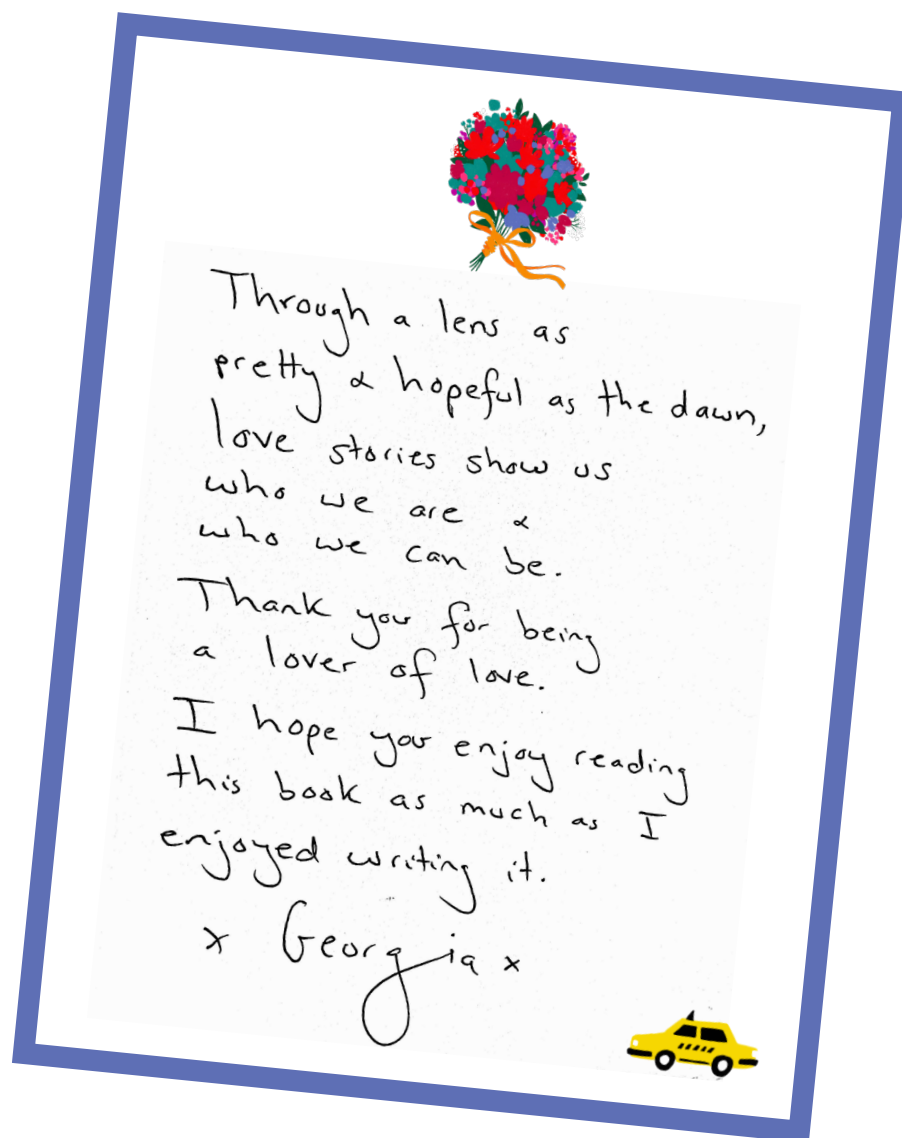 Through a lens as
pretty & hopeful as the dawn,
love stories show us
who we are &
who we can be.
Thank you for being
a lover of love.
I hope you enjoy reading
this book as much as I
enjoyed writing it.
x Georgia x